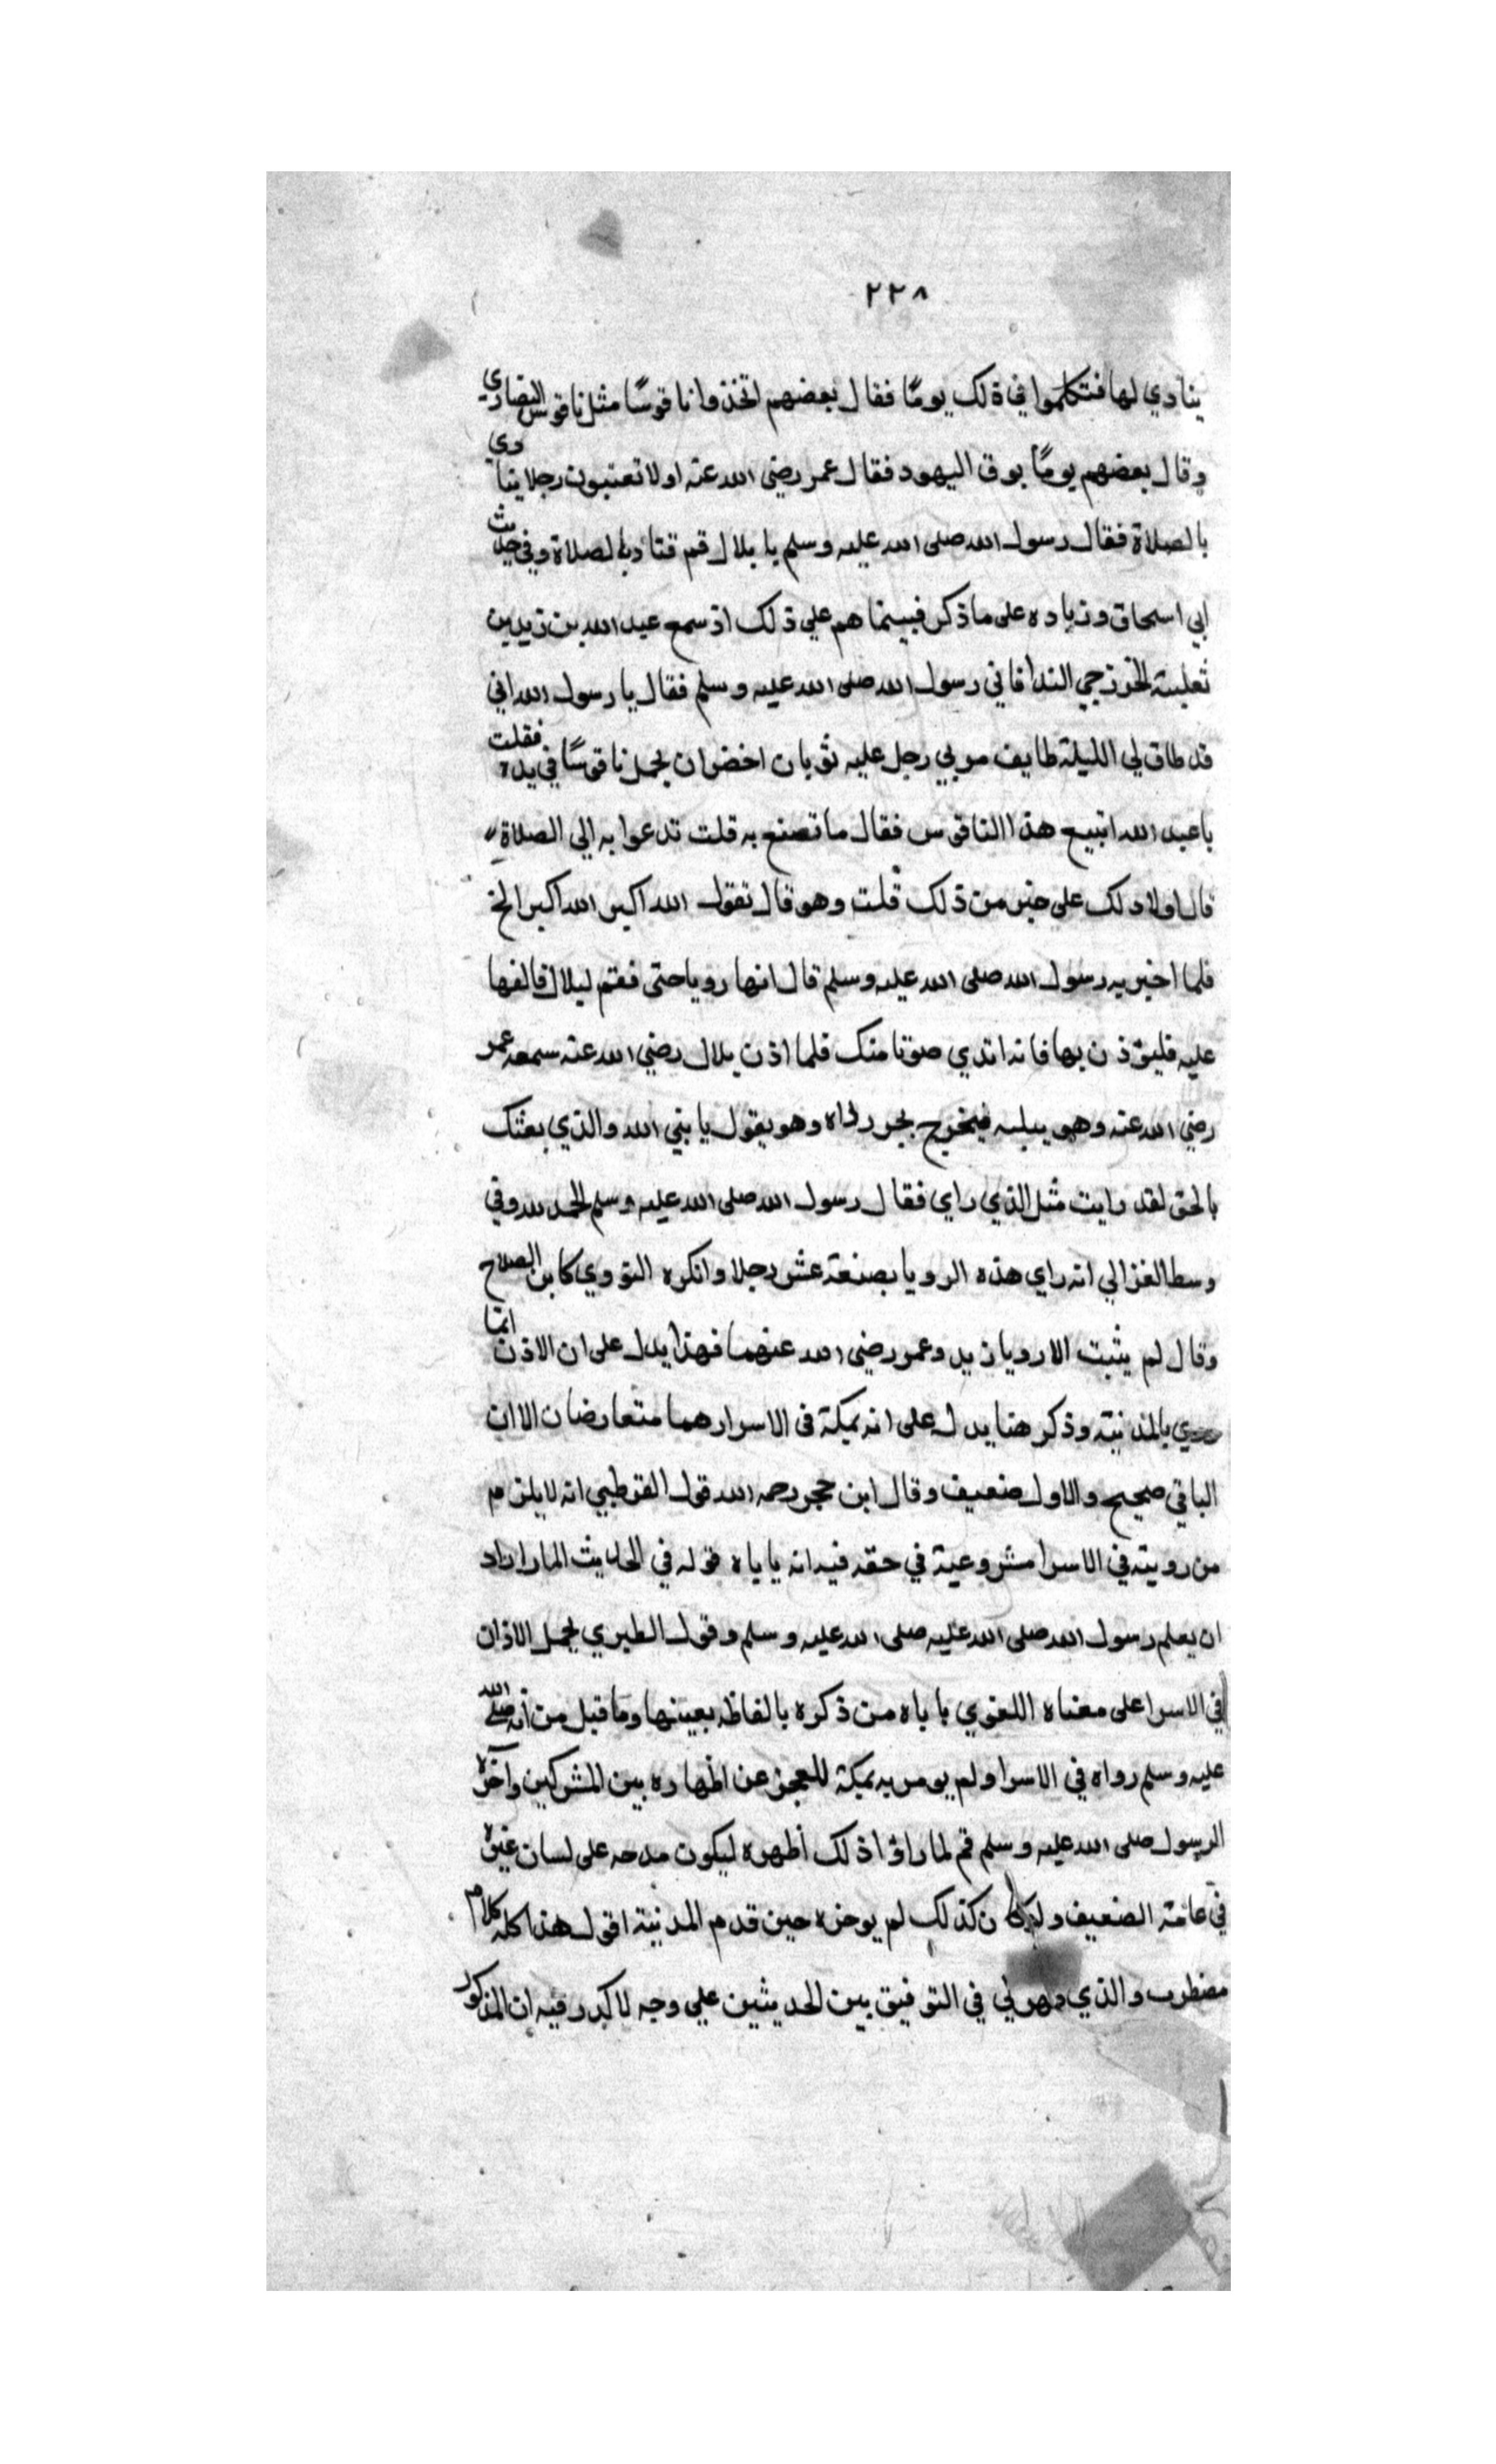 ٢٢٨
ينادي لها فتكلموا في ذلك يومًا فقال بعضهم اتخذوا ناقوسًا مثل ناقوس النصاري
وقال بعضهم يومًا بوق اليهود فقال عمر رضي الله عنه اولا تعتبون رجلا ينادي
بالصلاة فقال رسول الله صلى الله عليه وسلم يا بلال قم فناد بالصلاة وفي حديث
ابي اسحاق وزياده على ما ذكر فبينما هم علي ذلك اذ سمع عبد الله بن زيد بن
ثعلبة الخزرجي الندا فاتي رسول الله صلى الله عليه وسلم فقال يا رسول الله اني
قد طاق لي الليلة طايف مر بي رجل عليه ثوبان اخضران يحمل ناقوسًا في يده فقلت
يا عبد الله اتبيع هذا الناقوس فقال ما تصنع به قلت ندعوا به الي الصلاة
قال اولا دلك على خير من ذلك قلت وهو قال تقول الله اكبر الله اكبر الخ
فلما اخبر به رسول الله صلى الله عليه وسلم قال انها رويا حتى فقم لبلال فالفها
عليه فليوذن بها فانه اندي صوتا منك فلما اذن بلال رضي الله عنه سمعه عمر
رضي الله عنه وهو ببيته فيخرج يجر رداه وهو يقول يا نبي الله والذي بعثك
بالحق لقد رايت مثل الذي راي فقال رسول الله صلى الله عليه وسلم الحمد لله وفي
وسط الغزالي انه راي هذه الرويا بضعة عشر رجلا وانكره النووي كابن الصلاح
وقال لم يثبت الا رويا زيد وعمر رضي الله عنهما فهذا يدل على ان الاذن انما
بالمدينة وذكر هنا يدل على انه بمكة في الاسرا وهما متعارضان الا ان
الباقي صحيح والاول ضعيف وقال ابن حجر رحمه الله قول القرطبي انه لا يلزم
من رويته في الاسرا مشروعية في حقه فيه انه ياباه قوله في الحديث المار اراد
ان يعلم رسول الله صلى الله عليه صلى الله عليه وسلم وقول الطبري يحمل الاذان
في الاسرا على معناه اللغوي ياباه من ذكره بالفاظه بعينها وما قبل من انه صلى الله
عليه وسلم رواه في الاسرا ولم يومر به بمكة للعجز عن اظهاره بين المشركين واخره
الرسول صلى الله عليه وسلم ثم لما راوا ذلك أظهره ليكون مدحه على لسان غيره
في غاية الضعيف ولو كان كذلك لم يوخره حين قدم المدينة اقول هذا كله كلام
مضطرب والذي ظهر لي في التوفيق بين الحديثين علي وجه لا كدر فيه ان المذكور